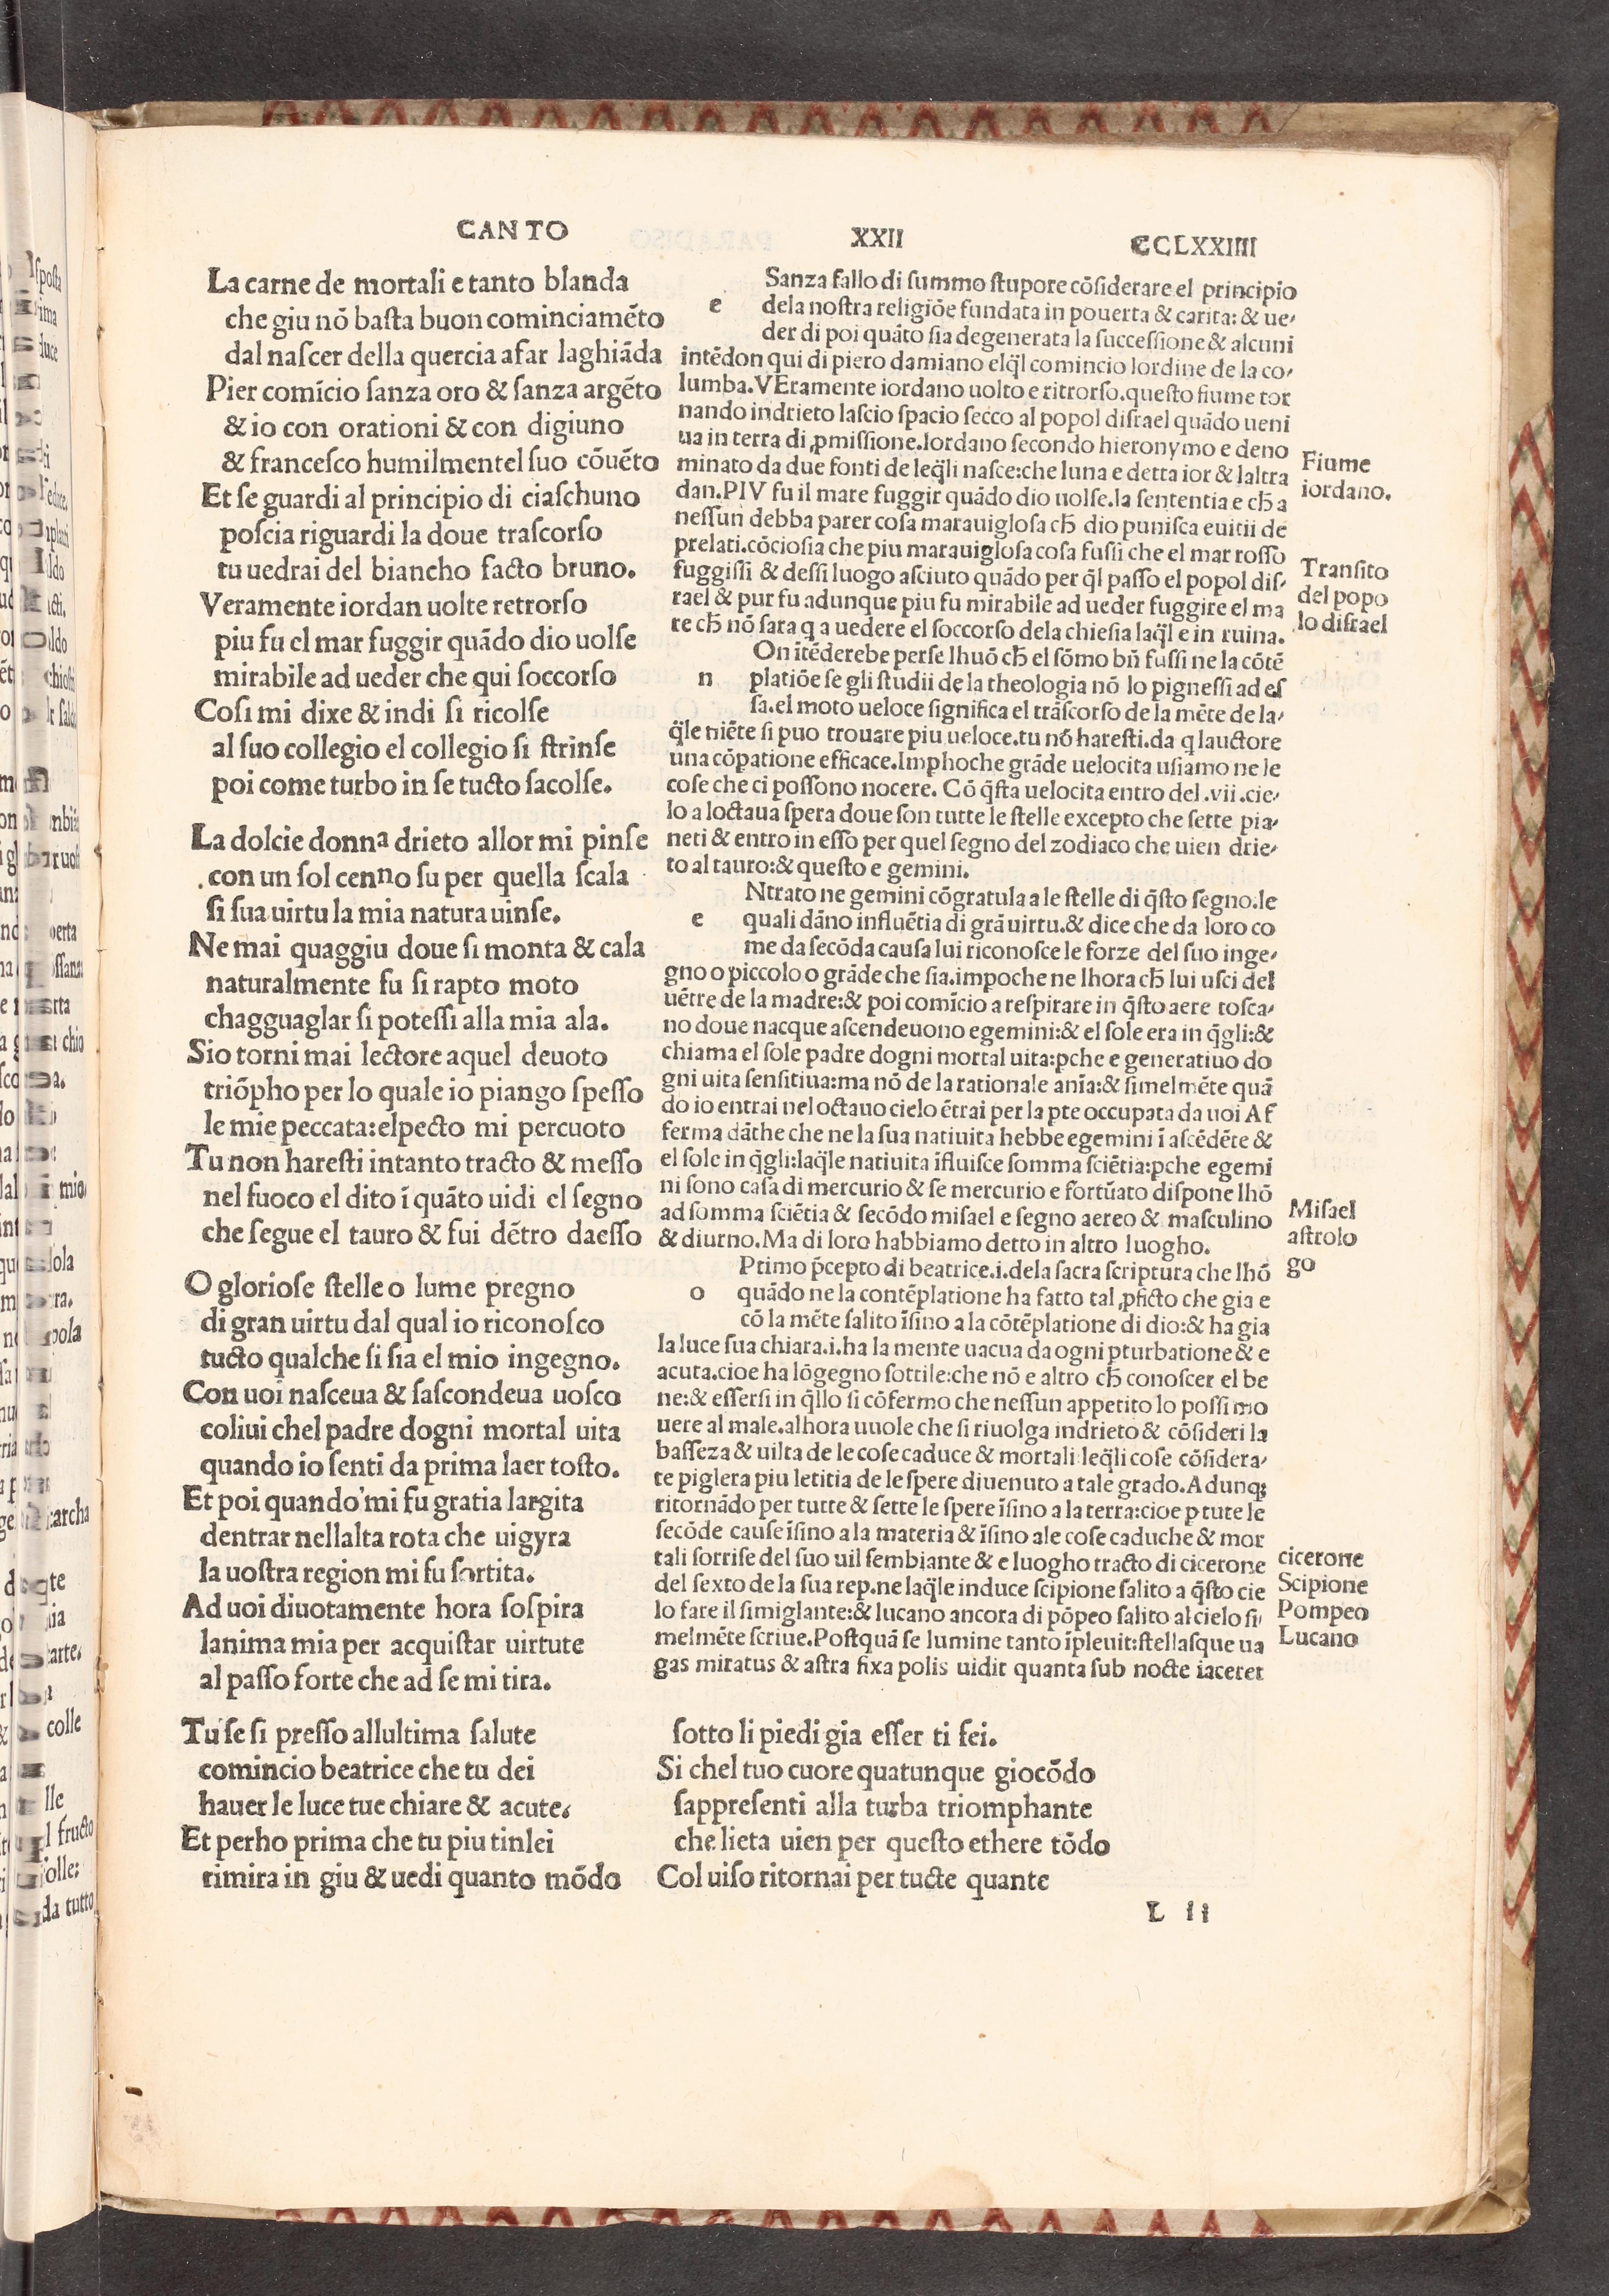 CANTO XXII CCLXXIIII
La carne de mortali e tanto blanda
che giu nō baſta buon cominciamēto
dal naſcer della quercia afar laghiāda
Pier comīcio ſanza oro & ſanza argēto
& io con orationi & con digiuno
& franceſco humilmentel ſuo cōuēto
Et ſe guardi al principio di ciaſchuno
poſcia riguardi la doue traſcorſo
tu uedrai del biancho facto bruno.
Veramente iordan uolte retrorſo
piu fu el mar fuggir quādo dio uolſe
mirabile ad ueder che qui ſoccorſo
Coſi mi dixe & indi ſi ricolſe
al ſuo collegio el collegio ſi ſtrinſe
poi come turbo in ſe tucto ſacolſe.
La dolcie donna drieto allor mi pinſe
.con un ſol cenno ſu per quella ſcala
ſi ſua uirtu la mia natura uinſe.
Ne mai quaggiu doue ſi monta & cala
naturalmente fu ſi rapto moto
chagguaglar ſi poteſſi alla mia ala.
Sio torni mai lectore aquel deuoto
triōpho per lo quale io piango ſpeſſo
le mie peccata:elpecto mi percuoto
Tu non hareſti intanto tracto & meſſo
nel fuoco el dito ī quāto uidi el ſegno
che ſegue el tauro & fui dētro daeſſo
O glorioſe ſtelle o lume pregno
di gran uirtu dal qual io riconoſco
tucto qualche ſi ſia el mio ingegno.
Con uoi naſceua & ſaſcondeua uoſco
coliui chel padre dogni mortal uita
quando io ſenti da prima laer toſto.
Et poi quando mi fu gratia largita
dentrar nellalta rota che uigyra
la uoſtra region mi fu ſortita.
Ad uoi diuotamente hora ſoſpira
lanima mia per acquiſtar uirtute
al paſſo forte che ad ſe mi tira.
Tu ſe ſi preſſo allultima ſalute
comincio beatrice che tu dei
hauer le luce tue chiare & acute.
Et perho prima che tu piu tinlei
rimira in giu & uedi quanto mōdo
ſotto li piedi gia eſſer ti fei.
Si chel tuo cuore quatunque giocōdo
ſappreſenti alla turba triomphante
che lieta uien per queſto ethere tōdo
Col uiſo ritornai per tucte quante
Sanza fallo di ſummo ſtupore cōſiderare el principio
e dela noſtra religiōe fundata in pouerta & carita: & ue-
der di poi quāto ſia degenerata la ſucceſſione & alcuni
intēdon qui di piero damiano elq̄l comincio lordine de la co-
lumba.VEramente iordano uolto e ritrorſo.queſto fiume tor
nando indrieto laſcio ſpacio ſecco al popol diſrael quādo ueni
ua in terra di ꝓmiſſione.Iordano ſecondo hieronymo e deno
minato da due fonti de leq̄li naſce:che luna e detta ior & laltra
dan.PIV fu il mare fuggir quādo dio uolſe.la ſententia e ch̄ a
neſſun debba parer coſa marauigloſa ch̄ dio puniſca euitii de
prelati.cōcioſia che piu marauigloſa coſa fuſſi che el mar roſſo
fuggiſſi & deſſi luogo aſciuto quādo per q̄l paſſo el popol diſ-
rael & pur fu adunque piu fu mirabile ad ueder fuggire el ma
re ch̄ nō ſara q a uedere el ſoccorſo dela chieſia laq̄l e in ruina.
On itēderebe perſe lhuō ch̄ el ſōmo bn̄ fuſſi ne la cōtē
n platiōe ſe gli ſtudii de la theologia nō lo pigneſſi ad eſ
ſa.el moto ueloce ſignifica el trāſcorſo de la mēte de la-
q̄le niēte ſi puo trouare piu ueloce.tu nō hareſti.da q lauctore
una cōpatione efficace.Imphoche grāde uelocita uſiamo ne le
coſe che ci poſſono nocere. Cō q̄ſta uelocita entro del .vii .cie-
lo a loctaua ſpera doue ſon tutte le ſtelle excepto che ſette pia-
neti & entro in eſſo per quel ſegno del zodiaco che uien drie-
to al tauro:& queſto e gemini.
Ntrato ne gemini cōgratula a le ſtelle di q̄ſto ſegno.le
e quali dāno influētia di grā uirtu.& dice che da loro co
me da ſecōda cauſa lui riconoſce le forze del ſuo inge-
gno o piccolo o grāde che ſia.impoche ne lhora ch̄ lui uſci del
uētre de la madre:& poi comīcio a reſpirare in q̄ſto aere toſca-
no doue nacque aſcendeuono egemini:& el ſole era in q̄gli:&
chiama el ſole padre dogni mortal uita:pche e generatiuo do
gni uita ſenſitiua:ma nō de la rationale anīa:& ſimelmēte quā
do io entrai nel octauo cielo ētrai per la pte occupata da uoi Af
ferma dāthe che ne la ſua natiuita hebbe egemini ī aſcēdēte &
el ſole in q̄gli:laq̄le natiuita īfluiſce ſomma ſciētia:pche egemi
ni ſono caſa di mercurio & ſe mercurio e fortūato diſpone lhō
ad ſomma ſciētia & ſecōdo miſael e ſegno aereo & maſculino
& diurno.Ma di loro habbiamo detto in altro luogho.
Primo p̄cepto di beatrice.i.dela ſacra ſcriptura che lhō
o quādo ne la contēplatione ha fatto tal ꝓficto che gia e
cō la mēte ſalito īſino a la cōtēplatione di dio:& ha gia
la luce ſua chiara.i.ha la mente uacua da ogni pturbatione & e
acuta.cioe ha lōgegno ſottile:che nō e altro ch̄ conoſcer el be
ne:& eſſerſi in q̄llo ſi cōfermo che neſſun appetito lo poſſi mo
uere al male.alhora uuole che ſi riuolga indrieto & cōſideri la
baſſeza & uilta de le coſe caduce & mortali leq̄li coſe cōſidera-
te piglera piu letitia de le ſpere diuenuto a tale grado.Adunq;
ritornādo per tutte & ſette le ſpere īſino a la terra:cioe p tute le
ſecōde cauſe īſino a la materia & īſino ale coſe caduche & mor
tali ſorriſe del ſuo uil ſembiante & e luogho tracto di cicerone
del ſexto de la ſua rep.ne laq̄le induce ſcipione ſalito a q̄ſto cie
lo fare il ſimiglante:& lucano ancora di pōpeo ſalito al cielo ſi-
melmēte ſcriue.Poſtquā ſe lumine tanto īpleuit:ſtellaſque ua
gas miratus & aſtra fixa polis uidit quanta ſub nocte iaceret
Fiume
iordano.
Tranſito
del popo
lo diſrael
Miſael
aſtrolo
go
cicerone
Scipione
Pompeo
Lucano
L ii